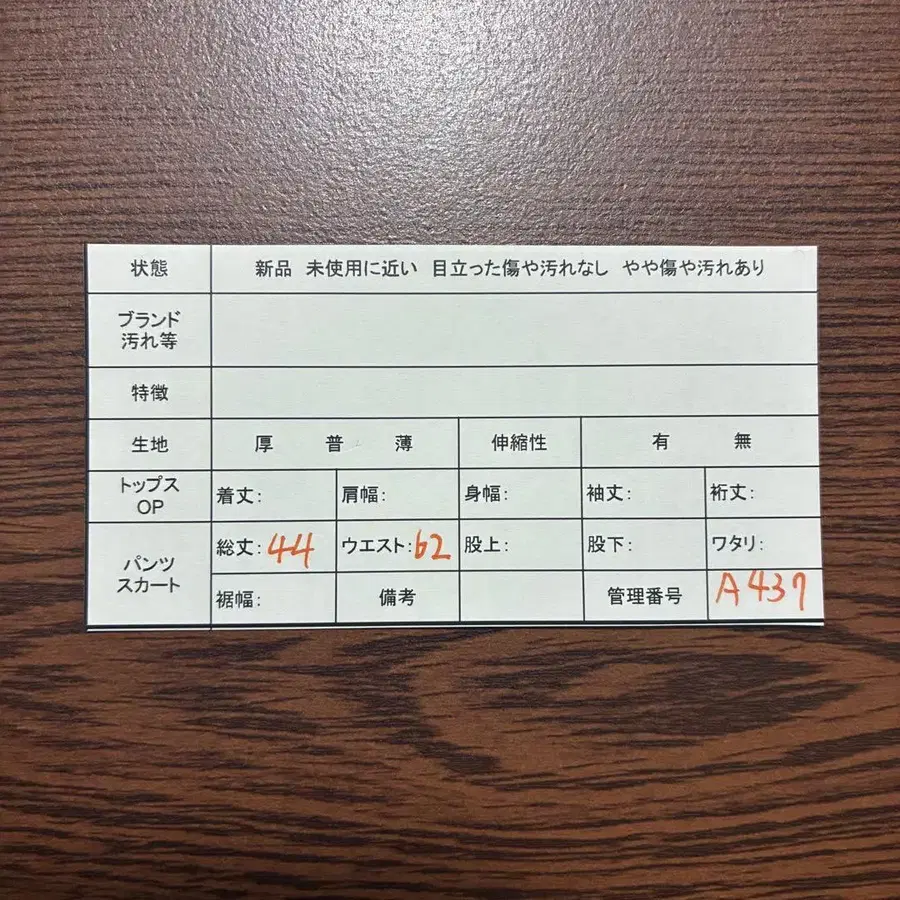 状態 新品 未使用に近い 目立った傷や汚れなし やや傷や汚れあり
ブランド
汚れ等
特徴
生地 厚 普 薄 伸縮性 有 無
トップス
OP 着丈: 肩幅: 身幅: 袖丈: 裄丈:
パンツ
スカート 総丈:44 ウエスト:62 股上: 股下: ワタリ:
裾幅: 備考 管理番号 A437